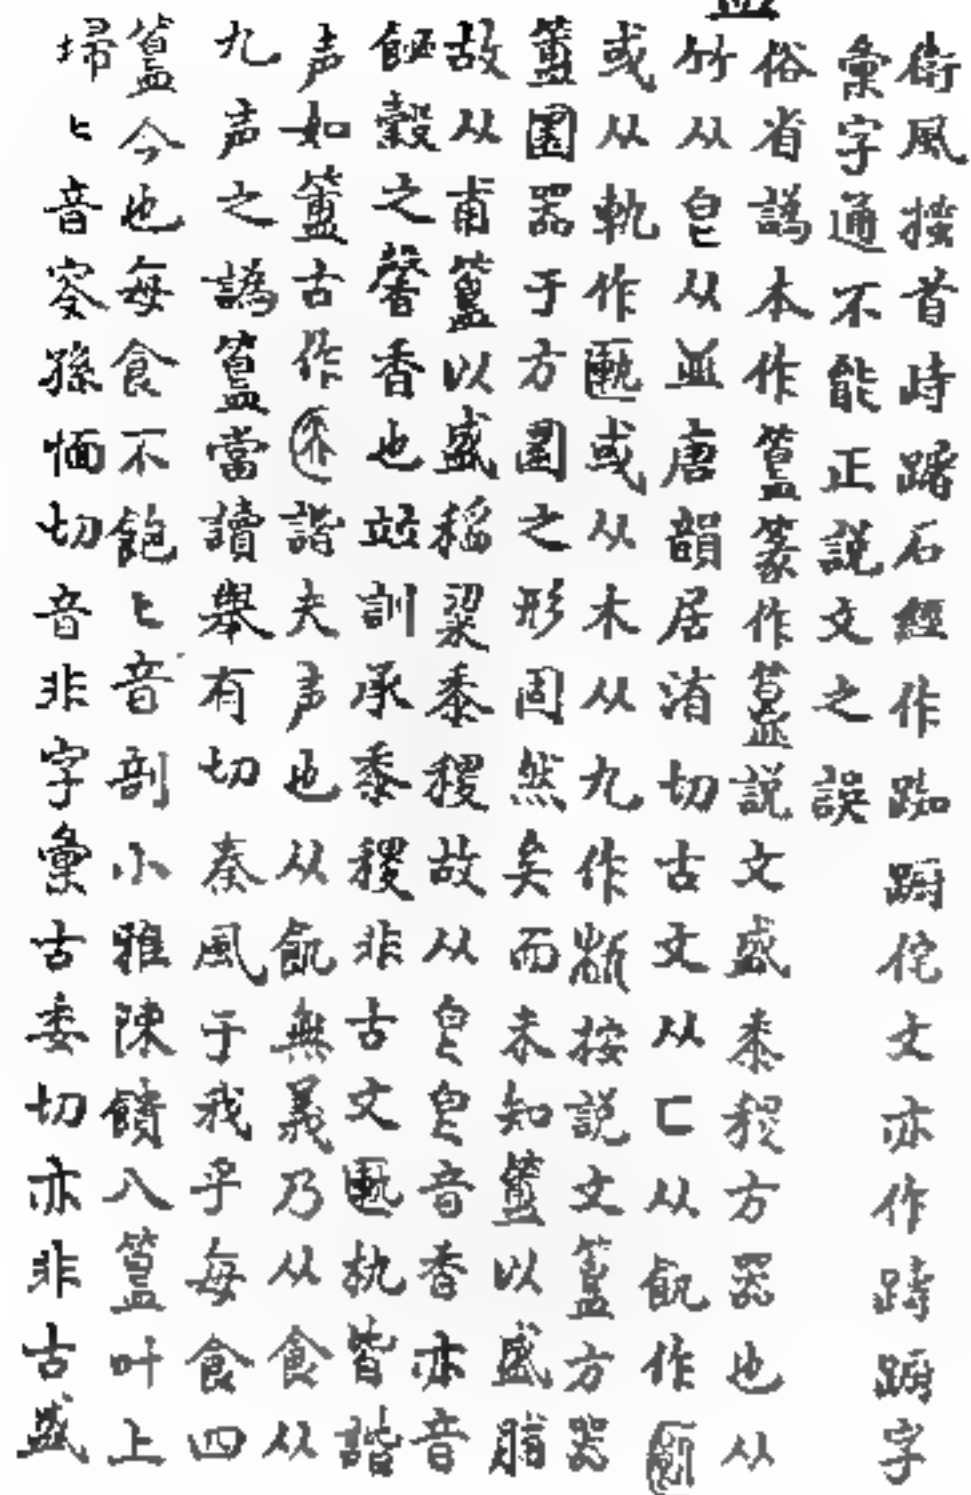 衛風搔首時躇石經作踟蹰佗文亦作跱蹰字
彙字通不能正説文之誤
俗省譌本作簋篆作簋説文盛黍稷方器也从
竹从皀从皿唐韻居洧切古文从匚从飢作
或从軌作匭或从木从九作按説文簋方器
簠圜器于方圜之形固然矣而未知簠以盛膳
故从甫簋以盛稻粱黍稷故从皀皀音香亦音
穀之馨香也訓承黍稷故非古文匭執皆諧
声如簠古作諧夫声也从飢無義乃从食从
九声之譌簋當讀舉有切秦風于我乎每食四
簋今也每食不飽飽音剖小雅陳饋八簋叶上
埽埽音叜孫愐切音非字彙古委切亦非古盛